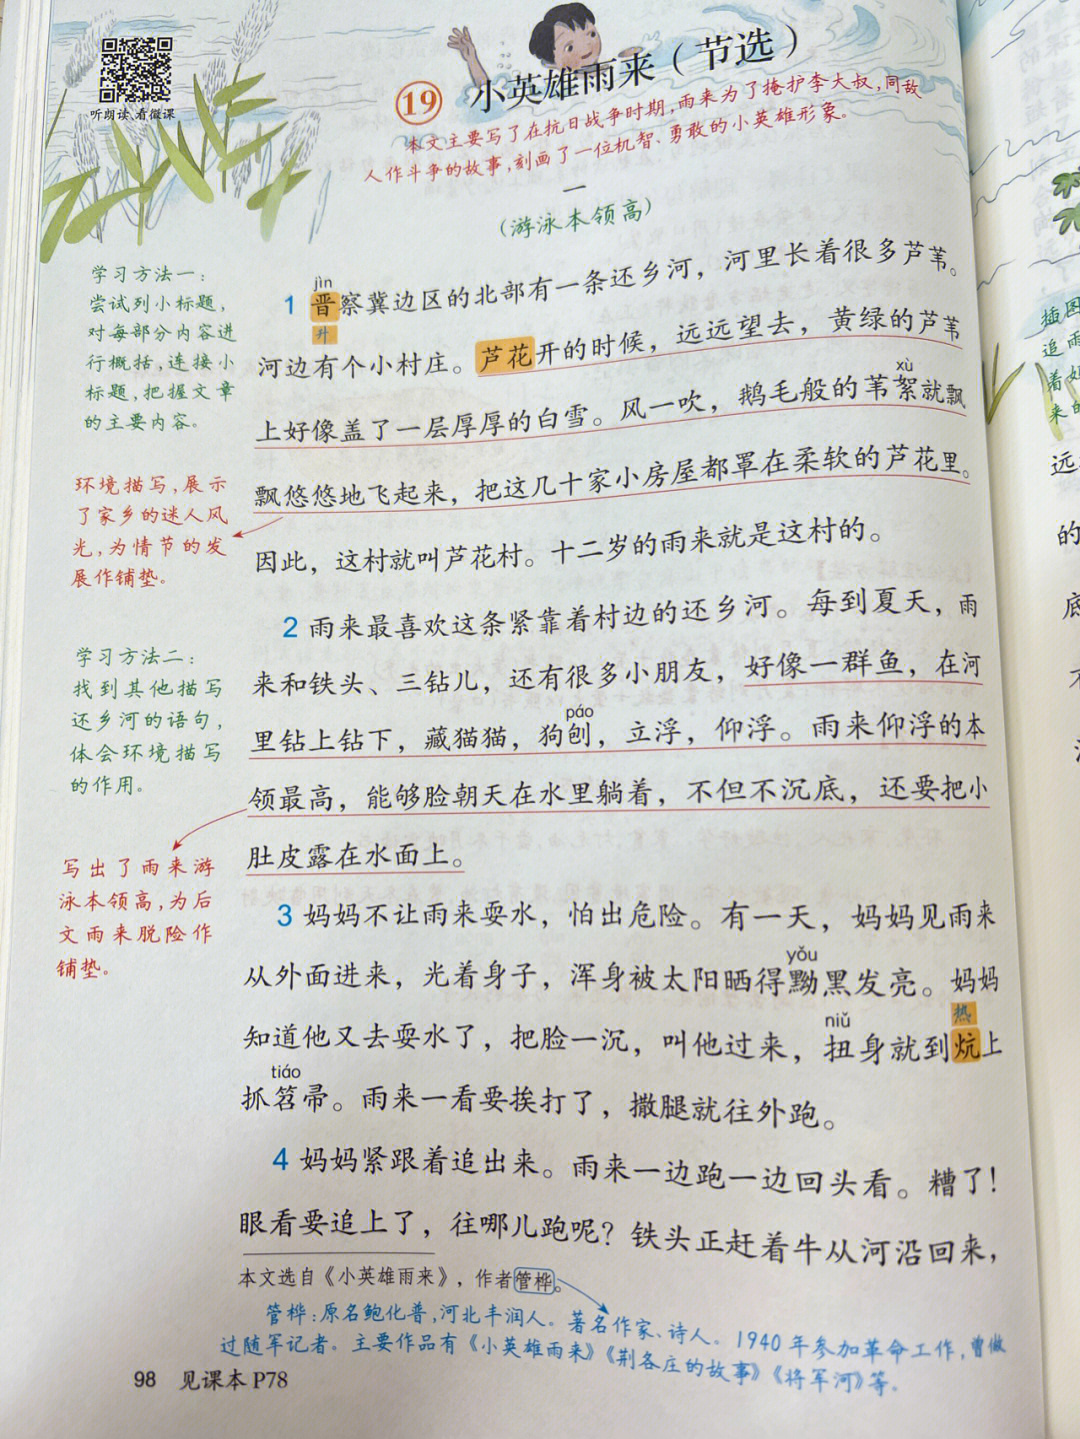 听朗读 看微课
19 小英雄雨来（节选）
本文主要写了在抗日战争时期，雨来为了掩护李大叔，同敌
人作斗争的故事，刻画了一位机智、勇敢的小英雄形象。
一
（游泳本领高）
学习方法一：
尝试列小标题，
对每部分内容进
行概括，连接小
标题，把握文章
的主要内容。
jìn
1 晋察冀边区的北部有一条还乡河，河里长着很多芦苇。
升
河边有个小村庄。芦花开的时候，远远望去，黄绿的芦苇
xù
上好像盖了一层厚厚的白雪。风一吹，鹅毛般的苇絮就飘
飘悠悠地飞起来，把这几十家小房屋都罩在柔软的芦花里。
因此，这村就叫芦花村。十二岁的雨来就是这村的。
环境描写，展示
了家乡的迷人风
光，为情节的发
展作铺垫。
2 雨来最喜欢这条紧靠着村边的还乡河。每到夏天，雨
来和铁头、三钻儿，还有很多小朋友，好像一群鱼，在河
páo
里钻上钻下，藏猫猫，狗刨，立浮，仰浮。雨来仰浮的本
领最高，能够脸朝天在水里躺着，不但不沉底，还要把小
肚皮露在水面上。
学习方法二：
找到其他描写
还乡河的语句，
体会环境描写
的作用。
写出了雨来游
泳本领高，为后
文雨来脱险作
铺垫。
3 妈妈不让雨来耍水，怕出危险。有一天，妈妈见雨来
yǒu
从外面进来，光着身子，浑身被太阳晒得黝黑发亮。妈妈
niǔ
热
知道他又去耍水了，把脸一沉，叫他过来，扭身就到炕上
tiáo
抓笤帚。雨来一看要挨打了，撒腿就往外跑。
4 妈妈紧跟着追出来。雨来一边跑一边回头看。糟了！
眼看要追上了，往哪儿跑呢？铁头正赶着牛从河沿回来，
本文选自《小英雄雨来》，作者管桦。
管桦：原名鲍化普，河北丰润人。著名作家、诗人。1940年参加革命工作，曾做
过随军记者。主要作品有《小英雄雨来》《荆各庄的故事》《将军河》等。
98 见课本P78
插图
追雨
着妈
来的
远
的
底